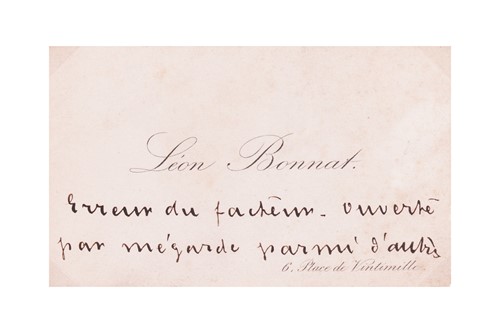 Léon Bonnat.
Erreur du facteur - ouverte
par mégarde parmi d'autres
6. Place de Vintimille.